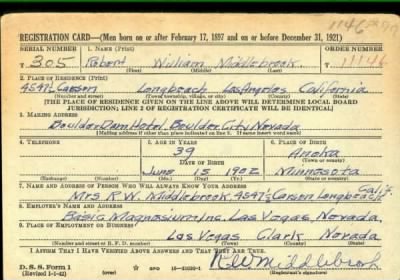 1146
REGISTRATION CARD—(Men born on or after February 17, 1897 and on or before December 31, 1921)
SERIAL NUMBER 1. NAME (Print) ORDER NUMBER
T 305 Robert William Middlebrook T 11146
(First) (Middle) (Last)
2. PLACE OF RESIDENCE (Print)
4547½ Carson Longbeach Los Angeles California
(Number and street) (Town, township, village, or city) (County) (State)
[THE PLACE OF RESIDENCE GIVEN ON THE LINE ABOVE WILL DETERMINE LOCAL BOARD
JURISDICTION; LINE 2 OF REGISTRATION CERTIFICATE WILL BE IDENTICAL]
3. MAILING ADDRESS
Boulder Dam Hotel Boulder City Nevada
[Mailing address if other than place indicated on line 2. If same insert word same]
4. TELEPHONE 5. AGE IN YEARS 6. PLACE OF BIRTH
39 Anoka
DATE OF BIRTH (Town or county)
June 15 1902 Minnesota
(Exchange) (Number) (Mo.) (Day) (Yr.) (State or country)
7. NAME AND ADDRESS OF PERSON WHO WILL ALWAYS KNOW YOUR ADDRESS
Mrs R.W. Middlebrook 4547½ Carson Longbeach Calif
8. EMPLOYER'S NAME AND ADDRESS
Basic Magnesium Inc. Las Vegas, Nevada
9. PLACE OF EMPLOYMENT OR BUSINESS
Las Vegas Clark Nevada
(Number and street or R. F. D. number) (Town) (County) (State)
I AFFIRM THAT I HAVE VERIFIED ABOVE ANSWERS AND THAT THEY ARE TRUE.
D. S. S. Form 1
(Revised 1-1-42) (over)
RW Middlebrook
(Registrant's signature)